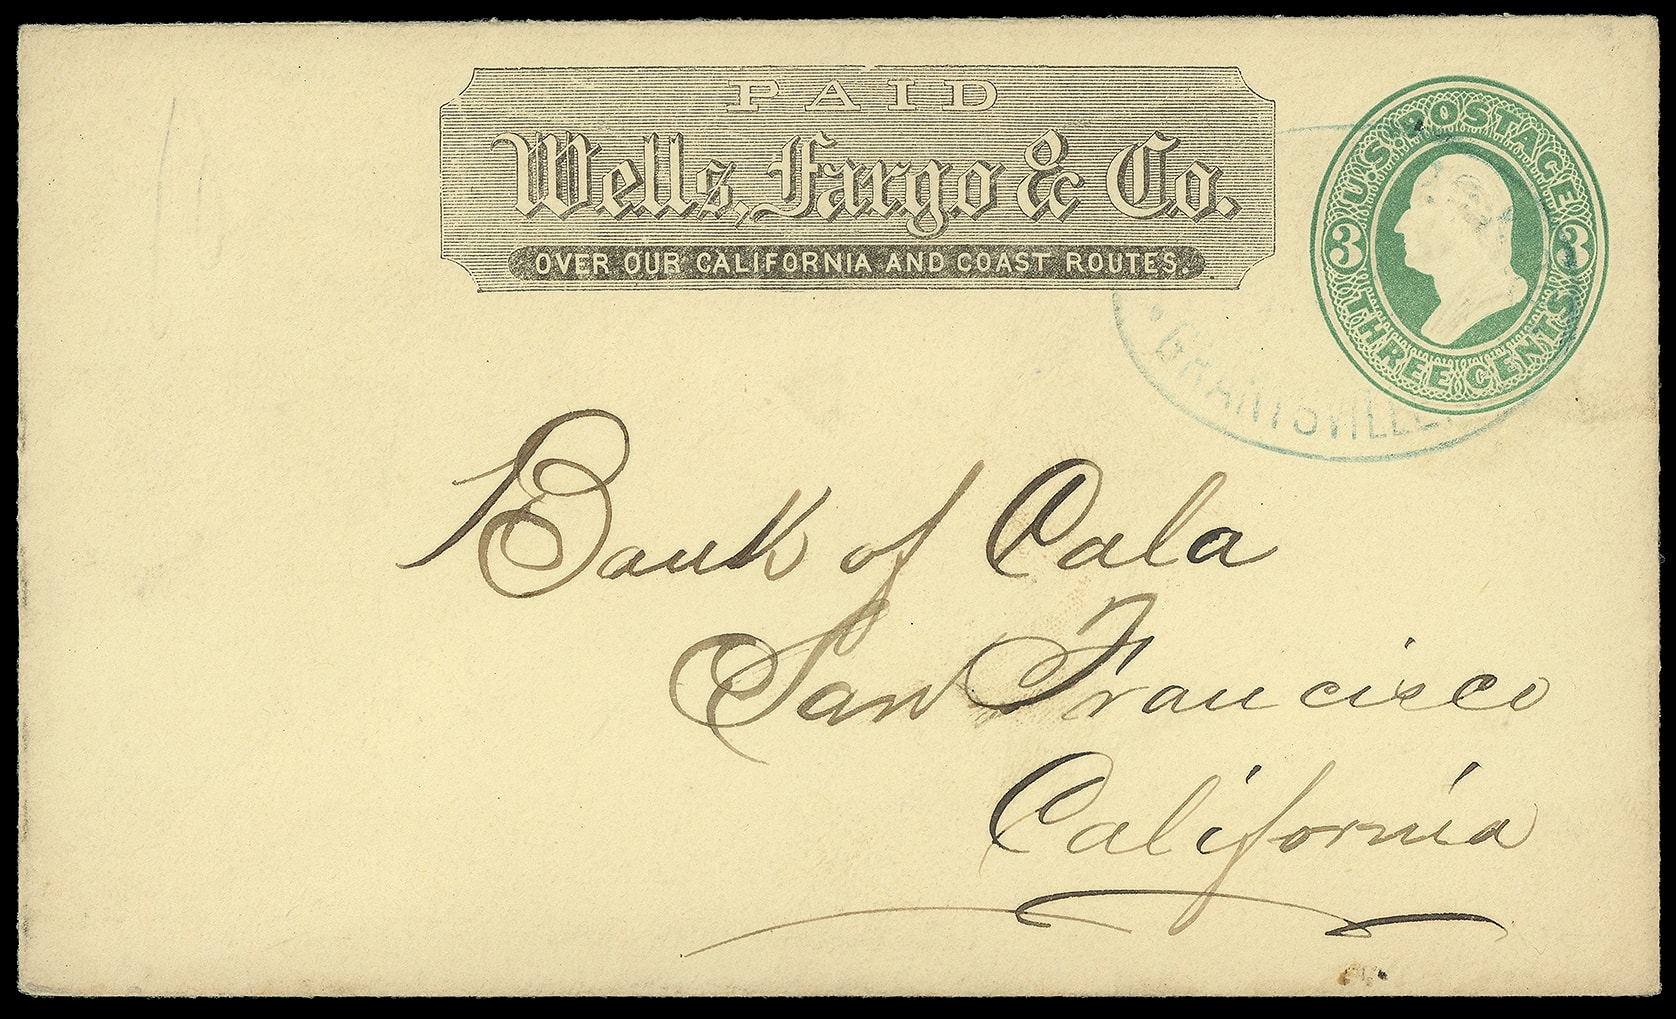 PAID
Wells, Fargo & Co.
OVER OUR CALIFORNIA AND COAST ROUTES.
U.S. POSTAGE
3 3
THREE CENTS
Bank of Cala
San Francisco
California